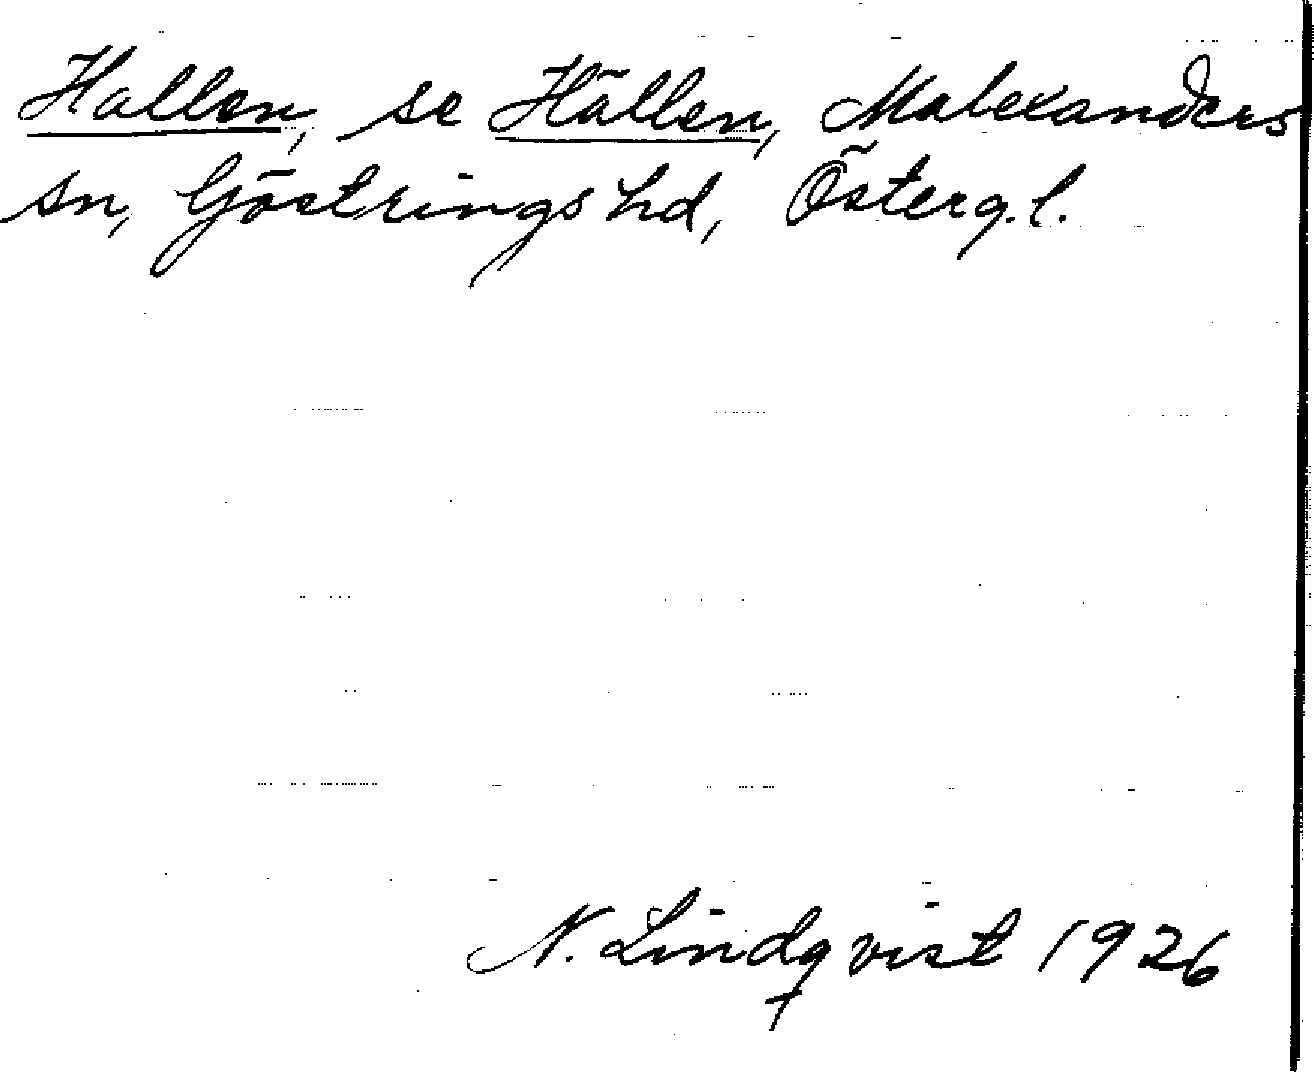 Hallen, se Hällen, Malexanders
sn, Göstrings hd, Österg.l.
N. Lindqvist 1926